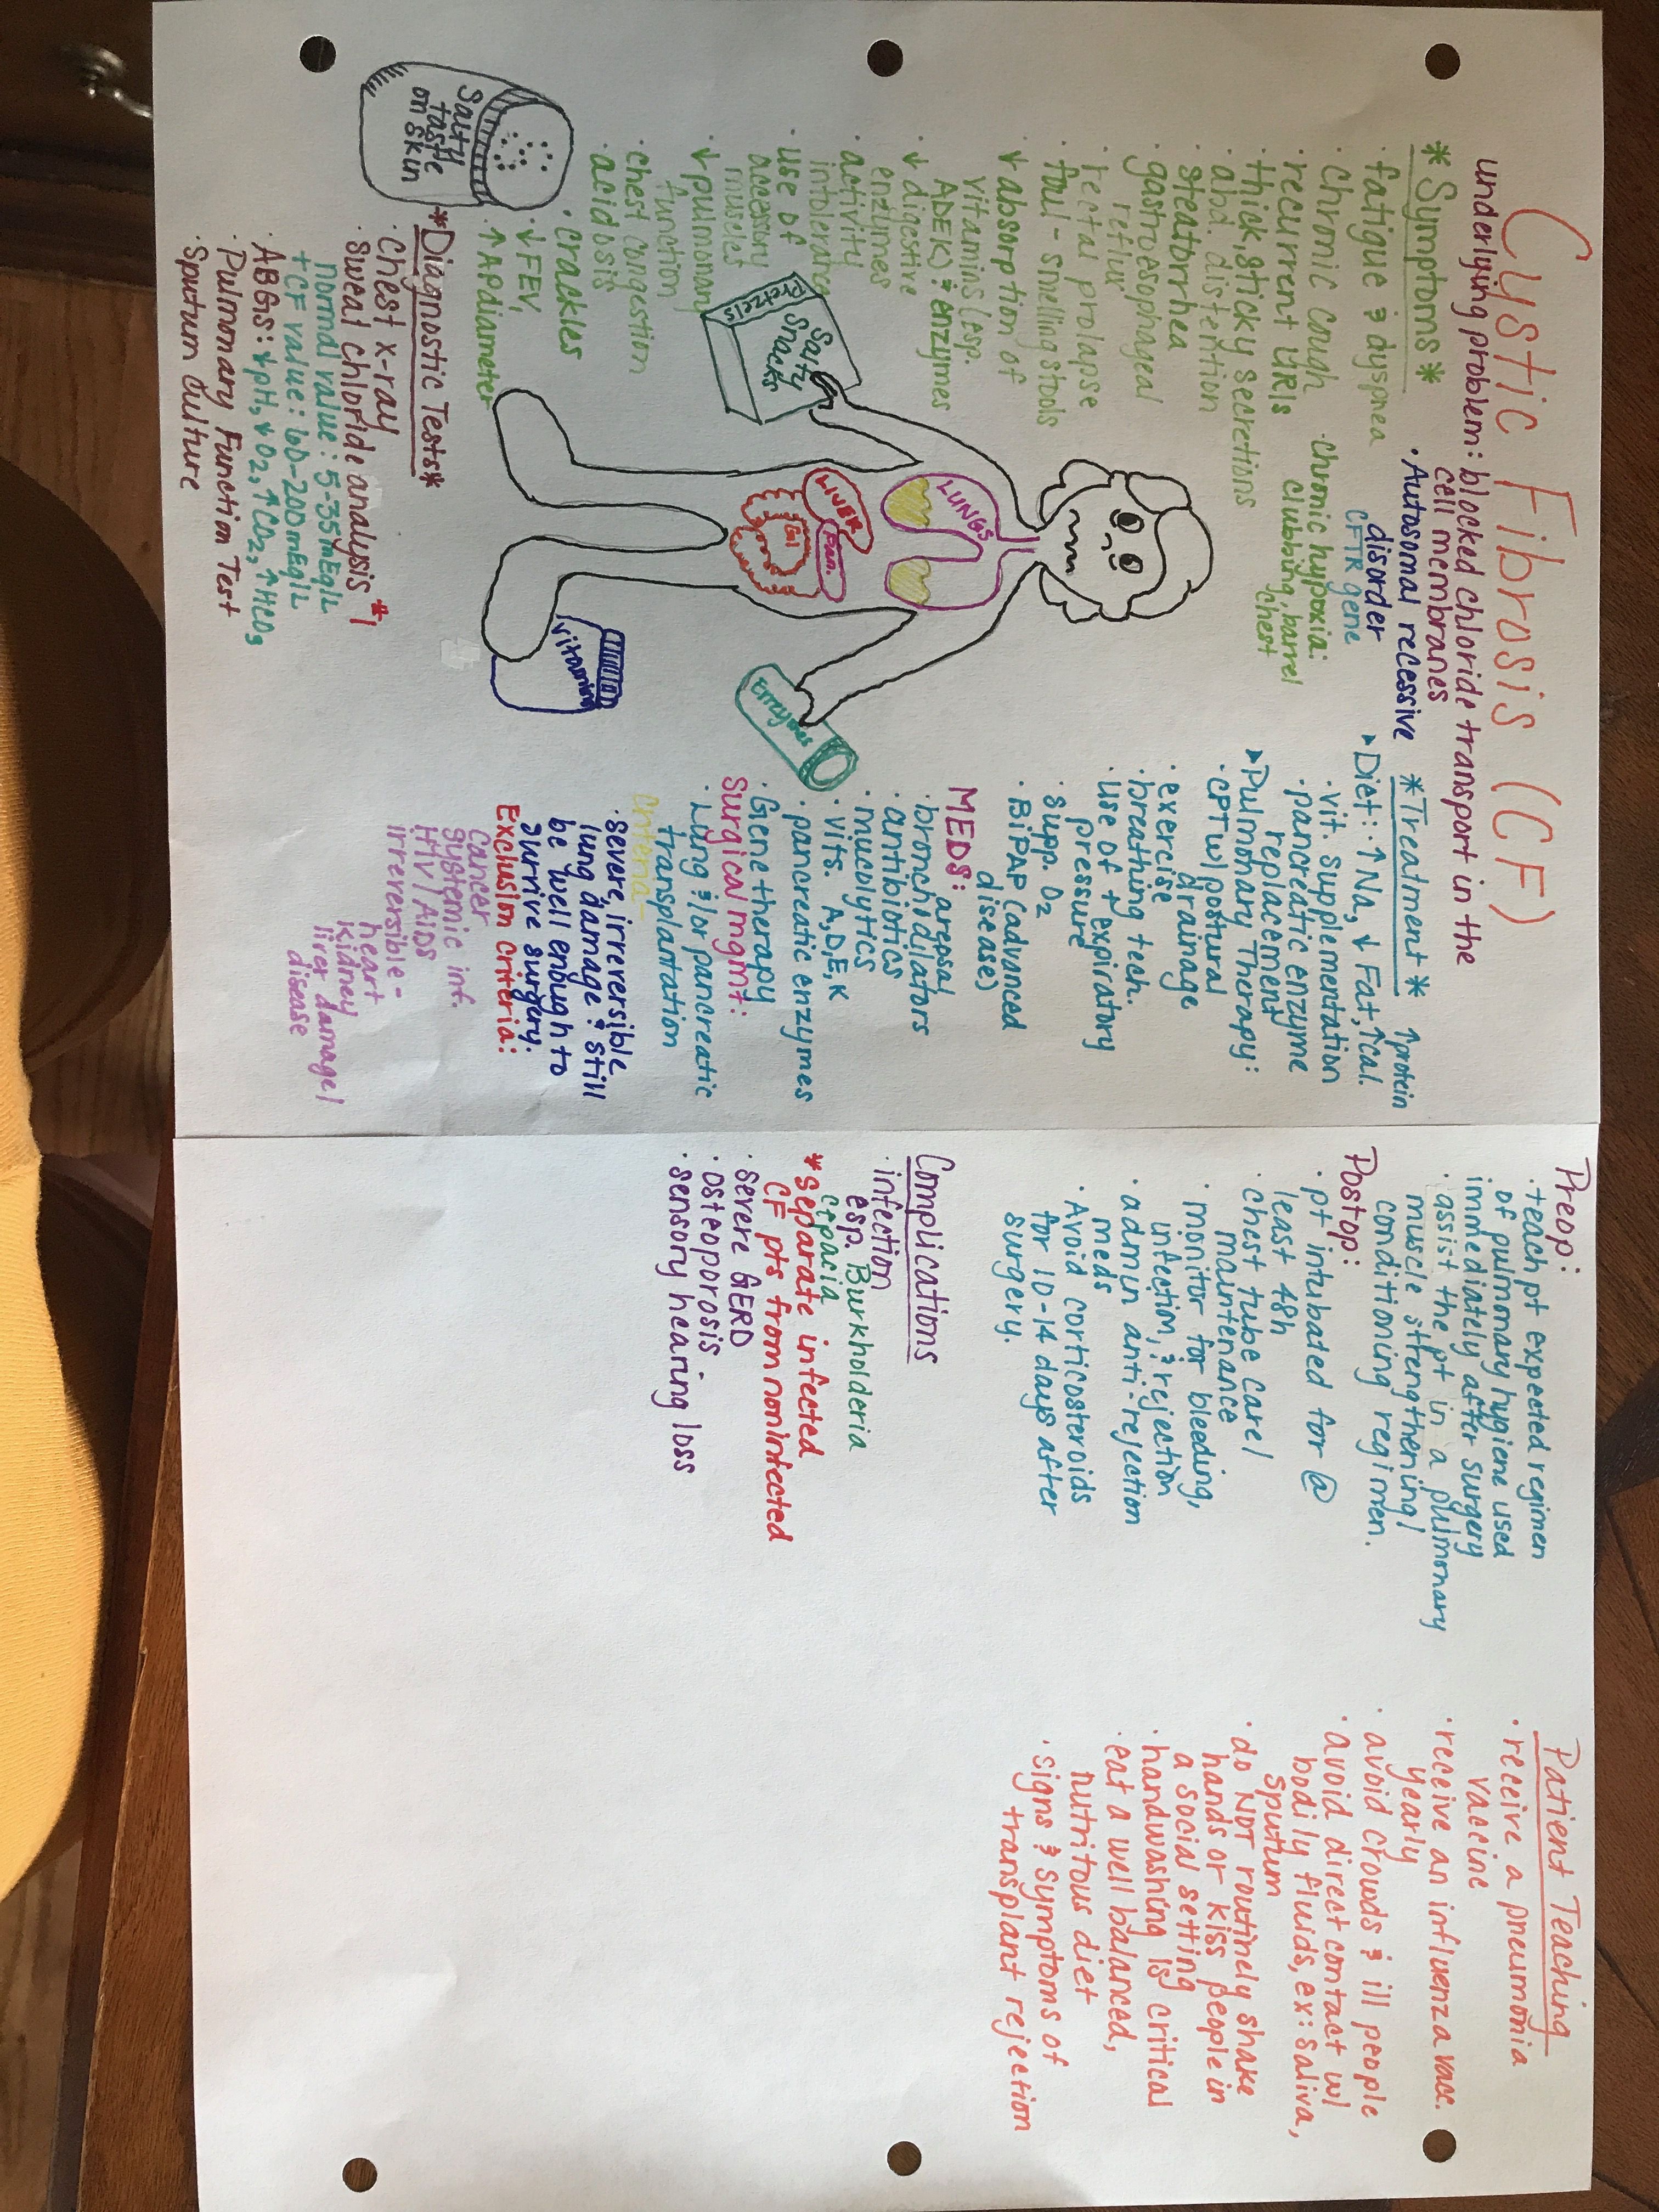 Cystic Fibrosis (CF)
underlying problem: blocked chloride transport in the
cell membranes
· Autosomal recessive
disorder
CFTR gene
*Symptoms*
· fatigue & dyspnea
· chronic cough
· recurrent URIs
· thick, sticky secretions
· abd. distention
· steatorrhea
· gastroesophageal
reflux
· rectal prolapse
· foul-smelling stools
· ↓ absorption of
vitamins (esp.
ADEK) & enzymes
· ↓ digestive
enzymes
· activity
intolerance
· use of
accessory
muscles
· ↓ pulmonary
function
· chest congestion
· acidosis
· crackles
· ↓ FEV1
· ↑ AP diameter
· chronic hypoxia:
clubbing, barrel
chest
Salty
taste
on skin
Salty
Snacks
Pretzels
LUNGS
LIVER
Pan.
GI
Enzymes
Vitamins
*Diagnostic Tests*
· Chest x-ray
· Sweat chloride analysis *1
normal value: 5-35 mEq/L
+ CF value: 60-200 mEq/L
· ABGs: ↓pH, ↓O2, ↑CO2, ↑HCO3
· Pulmonary Function Test
· Sputum Culture
*Treatment*
↑protein
▸ Diet: ↑Na, ↓Fat, ↑cal.
· vit. supplementation
· pancreatic enzyme
replacement
▸ Pulmonary Therapy:
· CPT w/ postural
drainage
· exercise
· breathing tech.
· use of + expiratory
pressure
· supp. O2
· BiPAP (advanced
disease)
MEDS:
· bronchodilators
· antibiotics
· mucolytics
· vits. A, D, E, K
· pancreatic enzymes
· Gene therapy
Surgical mgmt:
· Lung &/or pancreatic
transplantation
Criteria -
· severe, irreversible
lung damage & still
be well enough to
survive surgery.
Exclusion criteria:
cancer
systemic inf.
HIV/AIDS
irreversible -
heart
kidney
liver damage/
disease
Preop:
· teach pt expected regimen
of pulmonary hygiene used
immediately after surgery
· assist the pt in a pulmonary
muscle strengthening/
conditioning regimen.
Postop:
· pt intubated for @
least 48h
· chest tube care/
maintenance
· monitor for bleeding,
infection, & rejection
· admin anti-rejection
meds
· Avoid corticosteroids
for 10-14 days after
surgery.
Complications
· infection
esp. Burkholderia
cepacia
* separate infected
CF pts from noninfected
· severe GERD
· osteoporosis
· sensory hearing loss
Patient Teaching
· receive a pneumonia
vaccine
· receive an influenza vacc.
yearly
· avoid crowds & ill people
· avoid direct contact w/
bodily fluids, ex: saliva,
sputum
· do NOT routinely shake
hands or kiss people in
a social setting
· handwashing is critical
· eat a well balanced,
nutritous diet
· signs & symptoms of
transplant rejection